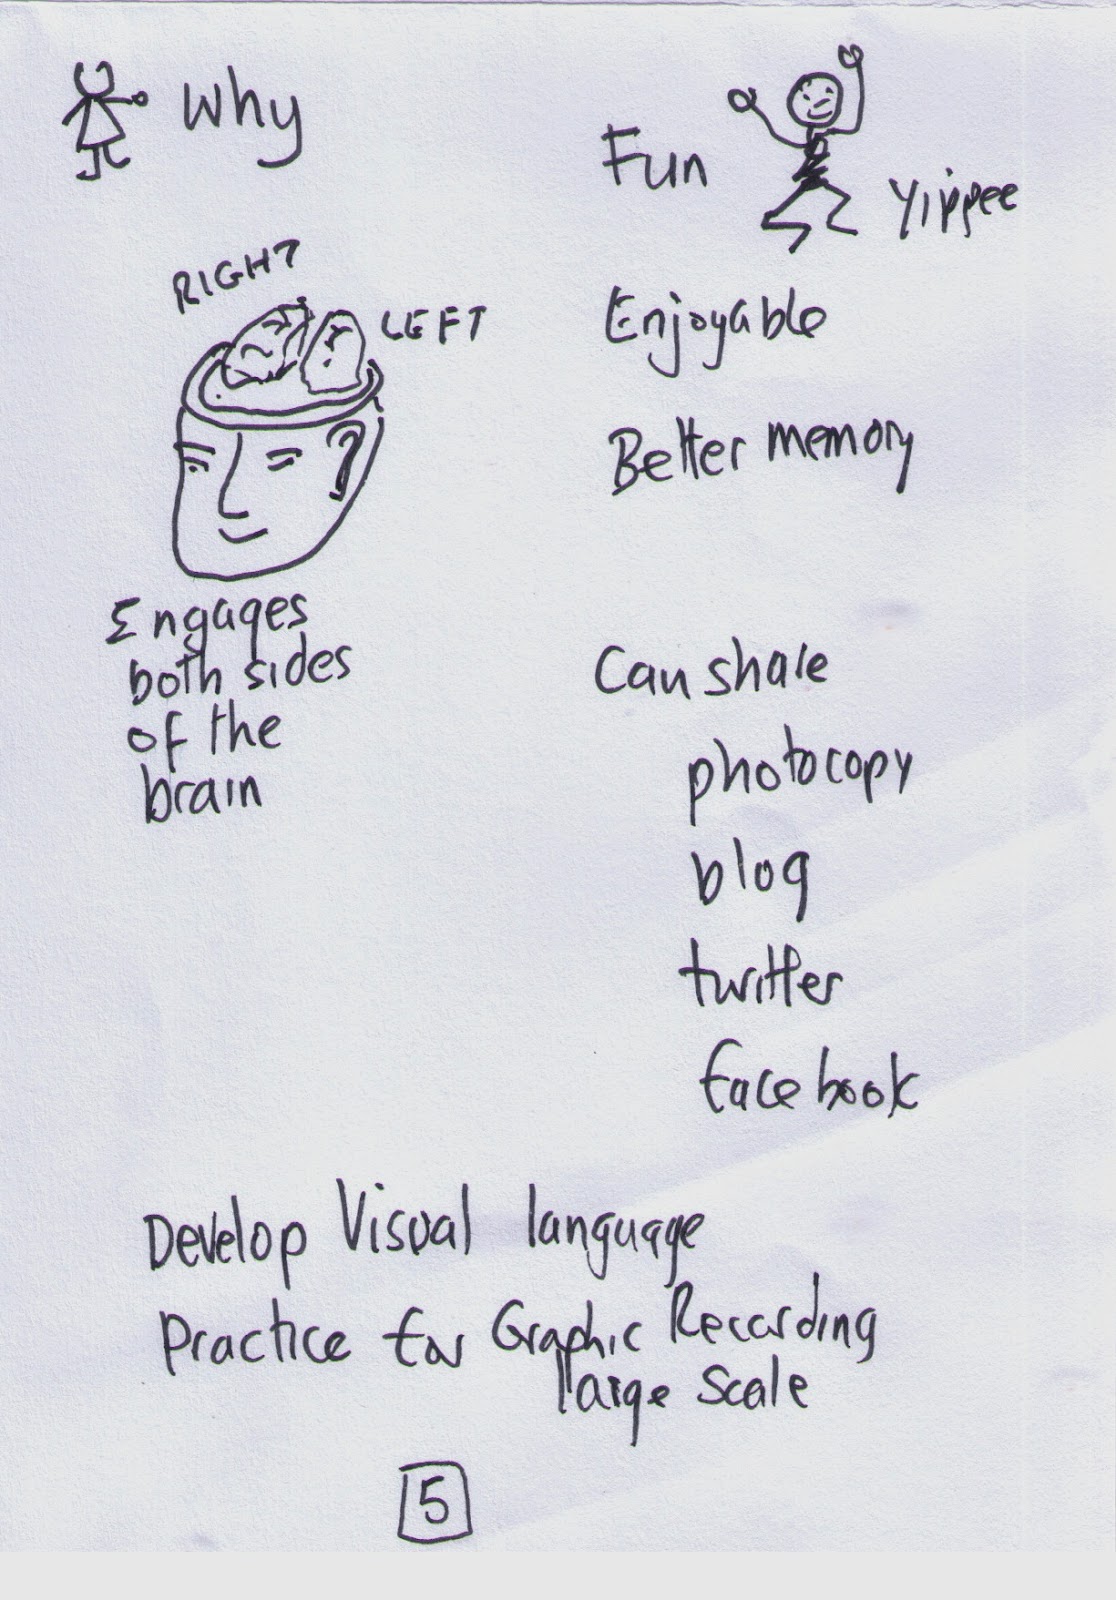 Why
RIGHT
LEFT
Engages
both sides
of the
brain
Fun
Yippee
Enjoyable
Better memory
Can share
photocopy
blog
twitter
facebook
Develop Visual language
Practice for Graphic Recording
large scale
5